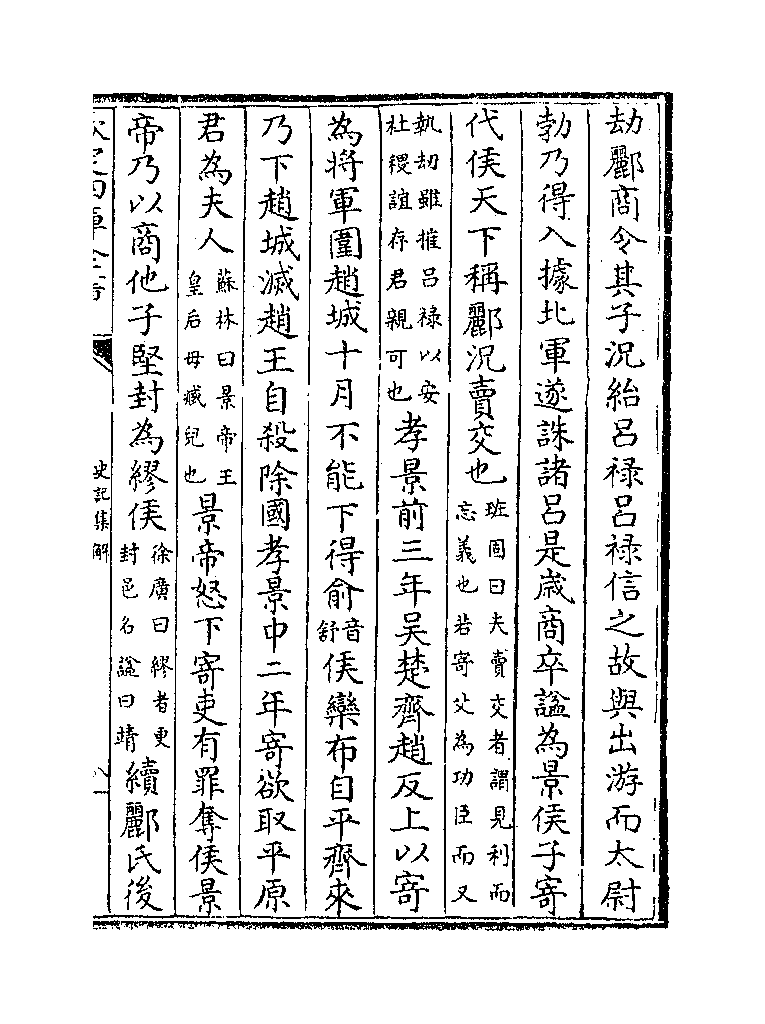 劫酈商令其子況紿呂禄呂禄信之故與出游而太尉
勃乃得入據北軍遂誅諸呂是歲商卒諡為景侯子寄
代侯天下稱酈況賣交也班固曰夫賣交者謂見利而忘義也若寄父為功臣而又
執刼雖摧呂祿以安社稷誼存君親可也孝景前三年吴楚齊趙反上以寄
為將軍圍趙城十月不能下得俞音舒侯欒布自平齊來
乃下趙城滅趙王自殺除國孝景中二年寄欲取平原
君為夫人蘇林曰景帝王皇后母臧兒也景帝怒下寄吏有罪奪侯景
帝乃以商他子堅封為繆侯徐廣曰繆者更封邑名諡曰靖續酈氏後
欽定四庫全書 史記集解